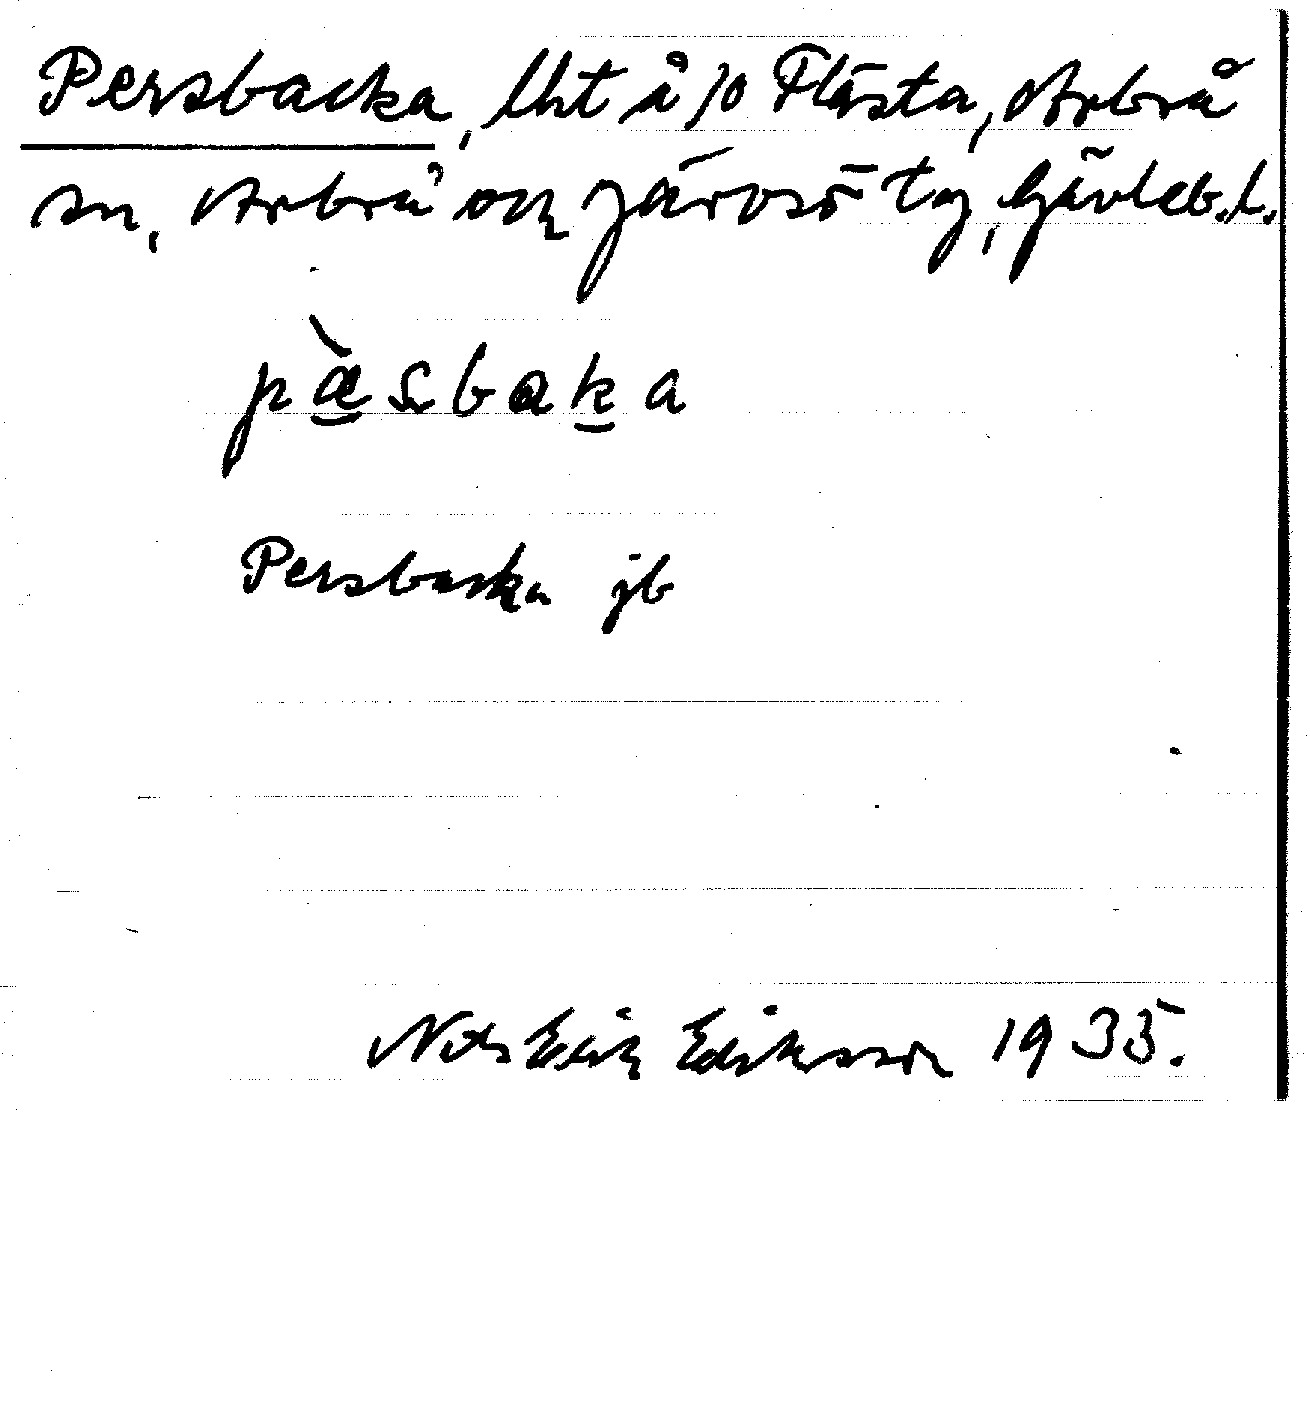 Persbacka, lht å jo Flästa, Arbrå
sn, Arbrå och Järvsö tg, Gävleb. l.
pæ̀sbaka
Persbacka jb
Nots Erik Eriksson 1935.